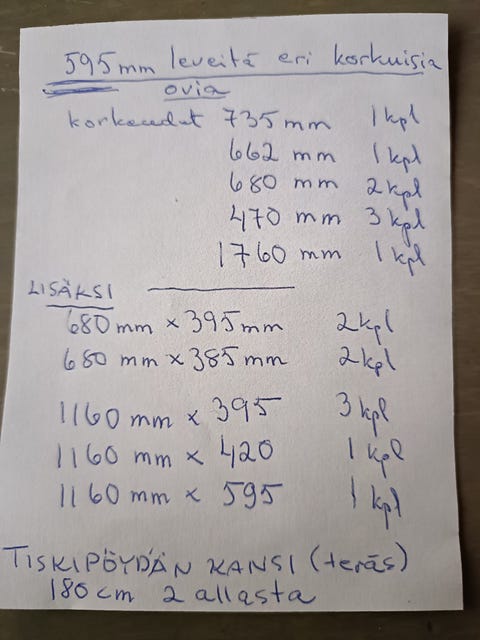 595mm leveitä eri korkuisia
ovia
korkeudet 735mm 1kpl
662 mm 1kpl
680 mm 2kpl
470 mm 3kpl
1760 mm 1kpl
LISÄKSI
680mm × 395mm 2kpl
680 mm × 385mm 2kpl
1160 mm × 395 3kpl
1160 mm × 420 1kpl
1160 mm × 595 1kpl
TISKIPÖYDÄN KANSI (teräs)
180cm 2 allasta